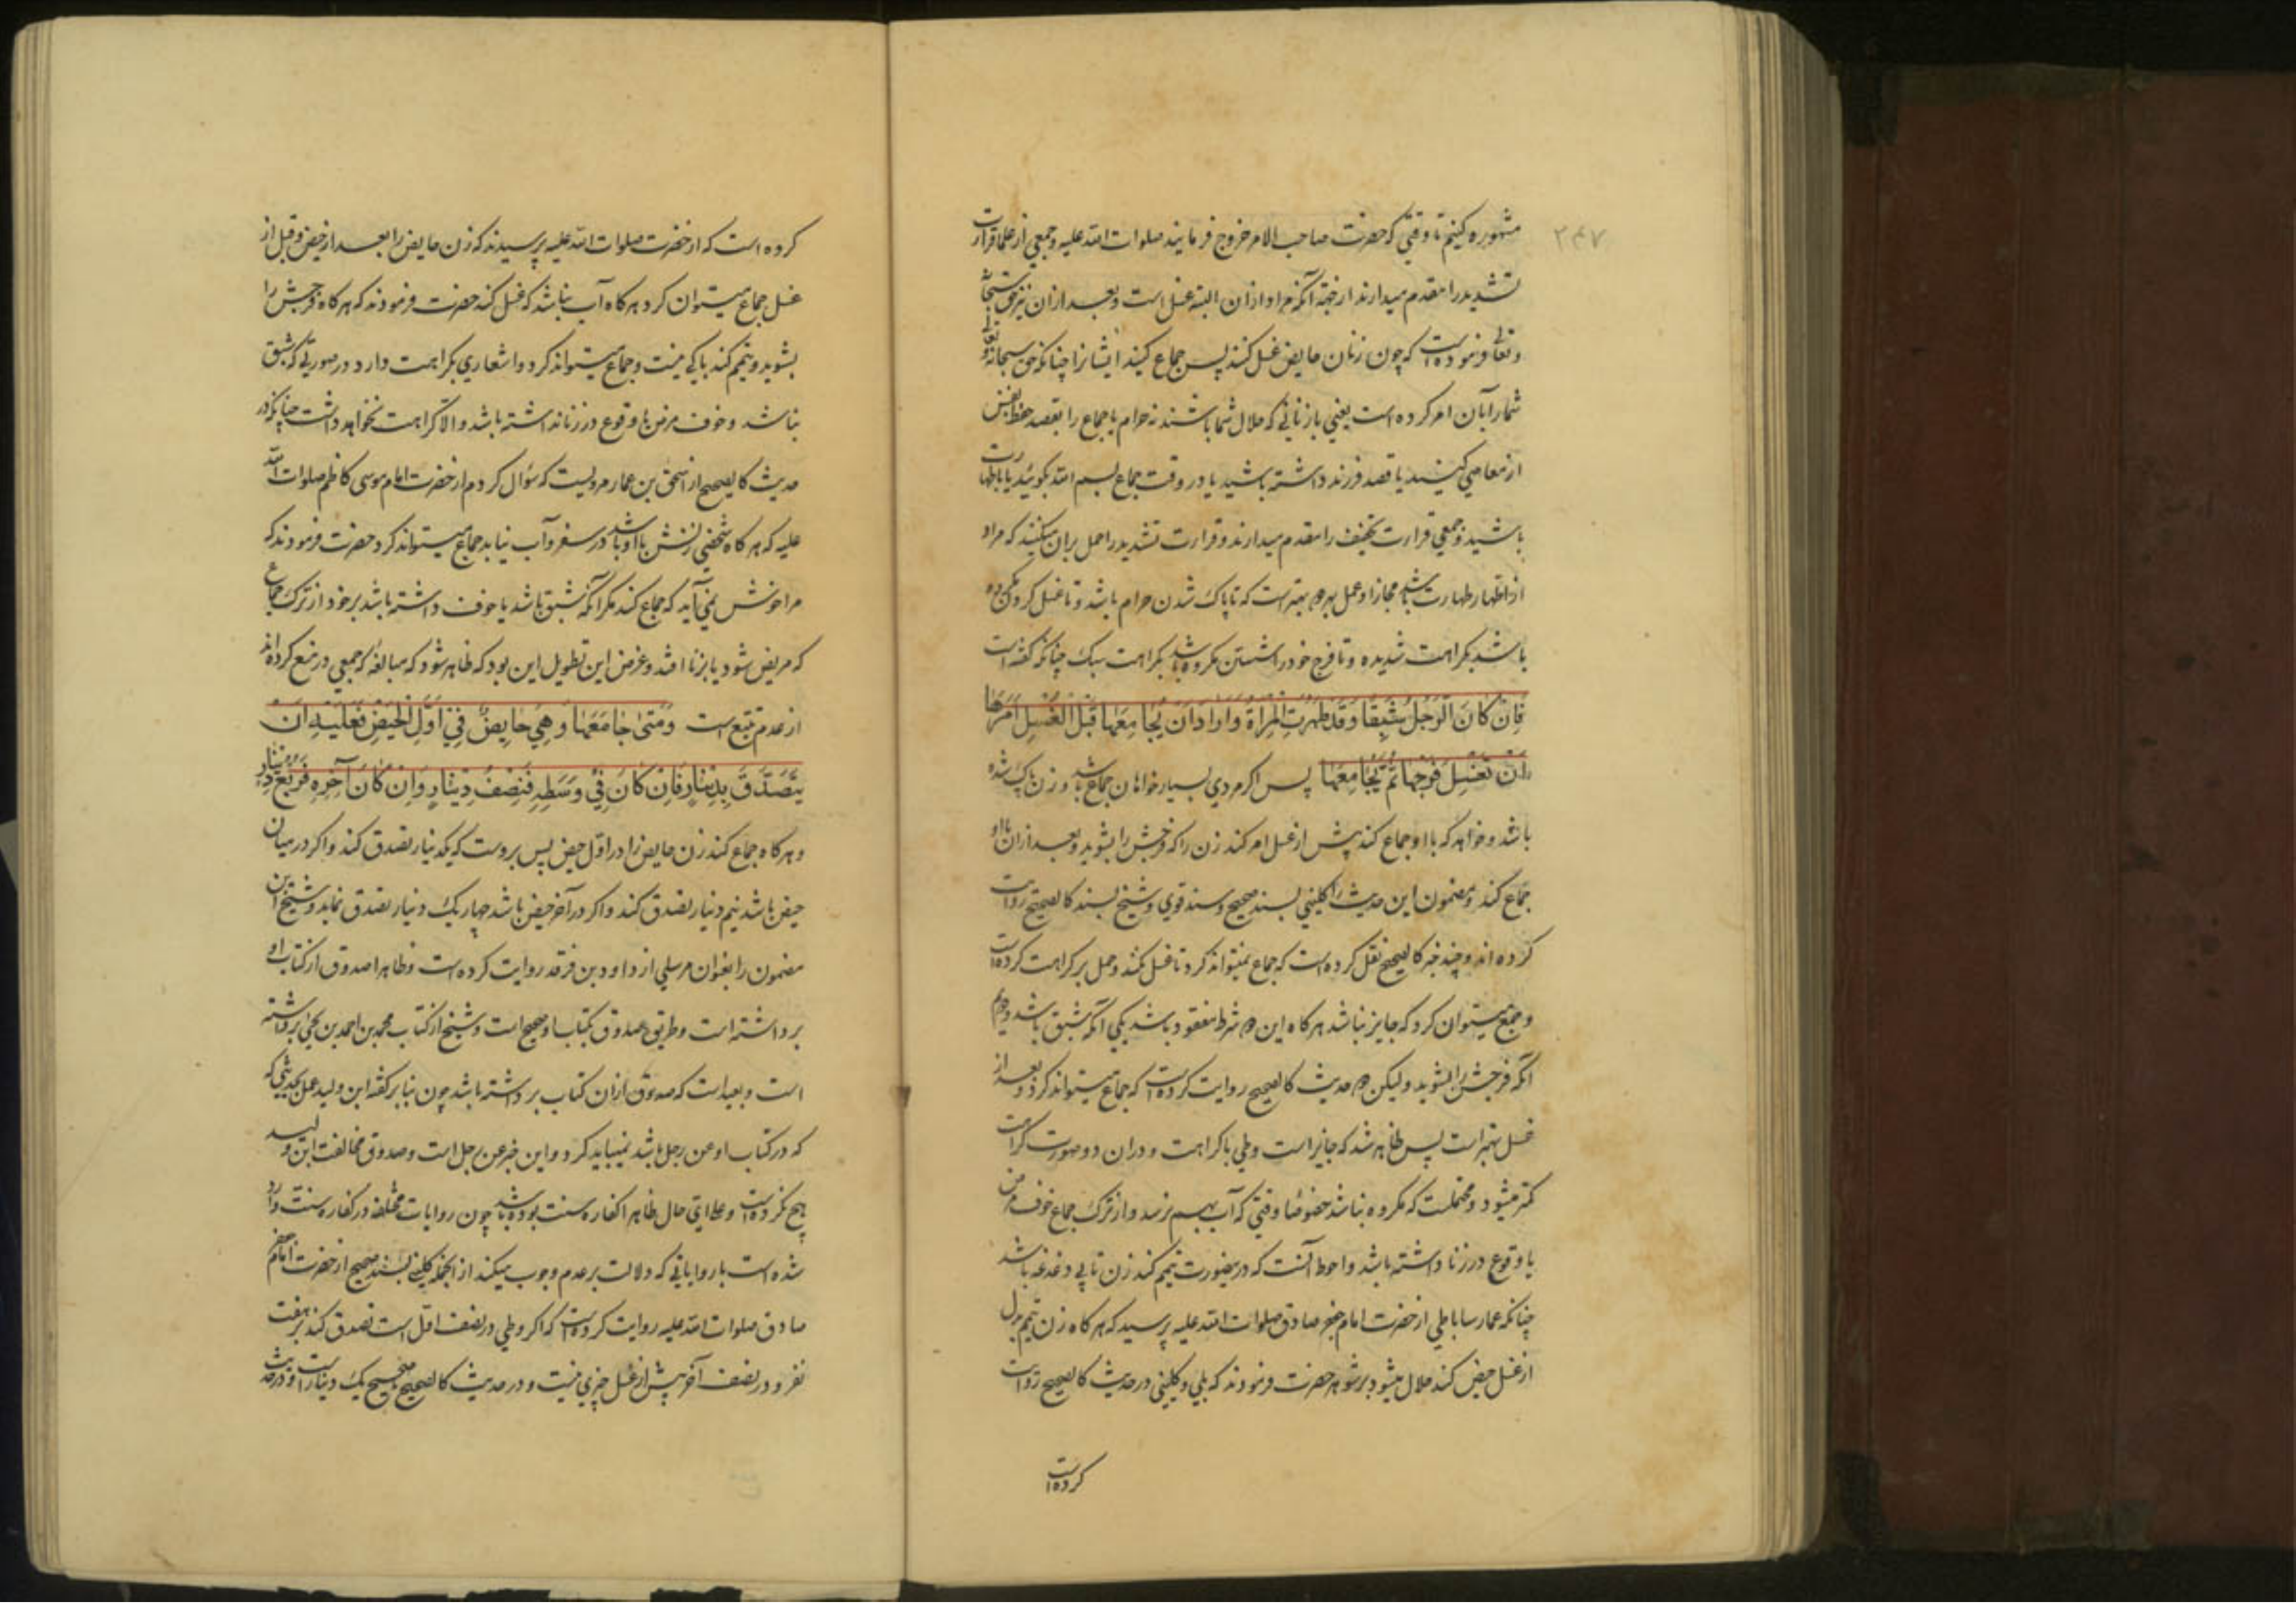 ۲۴۷
مشهوره کنیم تا وقتی که حضرت صاحب الامر خروج فرمایند صلوات الله علیه و جمعی از علما قراءت
تشدید را مقدم میدارند از جهة آنکه مراد ازان البته غسل است و بعد ازان نیز حق سبحانه
و تعالی فرموده است که چون زنان حایض غسل کنند پس جماع کنید ایشانرا چنانکه حق سبحانه و تعالی
شما را بآن امر کرده است یعنی با زنانی که حلال شما باشند نه حرام یا جماع را بقصد حفظ نفس
از معاصی کنید یا قصد فرزند داشته باشید یا در وقت جماع بسم الله بگوئید یا با طهارت
باشید و جمعی قراءت تخفیف را مقدم میدارند و قراءت تشدید را حمل بران میکنند که مراد
از اطهار طهارت باشد مجازا و عمل بهر دو بهتر است که تا پاک شدن حرام باشد و تا غسل کردن مکروه
باشد بکراهت شدیده و تا فرج خود را شستن مکروه باشد بکراهت سبک چنانکه گفته است
فَاِنْ كَانَ الرَّجُلُ شَبِقًا وَقَدْ طَهُرَتِ الْمَرْاَةُ وَاَرَادَ اَنْ يُجَامِعَهَا قَبْلَ الْغُسْلِ اَمَرَهَا
اَنْ تَغْسِلَ فَرْجَهَا ثُمَّ يُجَامِعُهَا پس اکر مردی بسیار خواهان جماع باشد و زن پاک شده
باشد و خواهد که با او جماع کند پیش از غسل امر کند زن را که فرجش را بشوید و بعد ازان با او
جماع کند و مضمون این حدیث را کلینی بسند صحیح و سند قوی و شیخ بسند کالصحیح روایت
کرده اند و چند خبر کالصحیح نقل کرده است که جماع نمیتواند کرد تا غسل نکند و حمل بر کراهت کرده است
و جمع میتوان کرد که جایز نباشد هر کاه این دو شرط مفقود باشد یکی آنکه شبق باشد و دویم
آنکه فرجش را بشوید و لیکن دو حدیث کالصحیح روایت کرده است که جماع میتواند کرد و بعد از
غسل بهتر است پس ظاهر شد که جایز است وطی با کراهت و دران دو صورت کراهت
کمتر میشود و محتملست که مکروه نباشد خصوصا وقتی که آب بهم نرسد و از ترک جماع خوف مرض
یا وقوع در زنا داشته باشد و احوط آنست که درینصورت تیمم کند زن تا بی دغدغه باشد
چنانکه عمار ساباطی از حضرت امام جعفر صادق صلوات الله علیه پرسید که هر کاه زن تیمم بدل
از غسل حیض کند حلال میشود بر شوهر حضرت فرمودند که بلی و کلینی در حدیث کالصحیح روایت
کرده است
کرده است که از حضرت صلوات الله علیه پرسیدند که زن حایض را بعد از حیض و قبل از
غسل جماع میتوان کرد هر کاه آب نباشد که غسل کند حضرت فرمودند که هر کاه فرجش را
بشوید و تیمم کند باکی نیست و جماع میتواند کرد و اشعاری بکراهت دارد در صورتی که شبق
نباشد و خوف مرض یا وقوع در زنا نداشته باشد والا کراهت نخواهد داشت چنانکه در
حدیث کالصحیح از اسحق بن عمار مرویست که سؤال کردم از حضرت امام موسی کاظم صلوات الله
علیه که هر کاه شخصی زنش با او باشد در سفر و آب نیابد جماع میتواند کرد حضرت فرمودند که
مرا خوش نمی آید که جماع کند مکر آنکه شبق باشد یا خوف داشته باشد بر خود از ترک جماع
که مریض شود یا بزنا افتد و غرض این تطویل این بود که ظاهر شود که مبالغه که جمعی در منع کرده اند
از عدم تتبع است وَمَتٰى جَامَعَهَا وَهِيَ حَايِضٌ فِي اَوَّلِ الْحَيْضِ فَعَلَيْهِ اَنْ
يَتَصَدَّقَ بِدِينَارٍ فَاِنْ كَانَ فِي وَسَطِهِ فَنِصْفُ دِينَارٍ وَاِنْ كَانَ آخِرِهِ فَرُبْعُ دِينَارٍ
و هر کاه جماع کند زن حایض را در اوّل حیض پس بروست که یکدینار تصدق کند و اکر در میان
حیض باشد نیم دینار تصدق کند و اکر در آخر حیض باشد چهار یک دینار تصدق نماید و شیخ این
مضمون را بعنوان مرسلی از داود بن فرقد روایت کرده است و ظاهرا صدوق از کتاب او
برداشته است و طریق صدوق بکتاب او صحیح است و شیخ از کتاب محمد بن احمد بن یحیی برداشته
است و بعید است که صدوق ازان کتاب برداشته باشد چون بنا بر کفته ابن ولید عمل بحدیثی که
که در کتاب او عن رجل باشد نمیباید کرد و این خبر عن رجل است و صدوق مخالفت ابن ولید
هیچ نکرده است و علی ای حال ظاهرا کفاره سنت بوده باشد چون روایات مختلفه در کفاره سنت وارد
شده است با روایاتی که دلالت بر عدم وجوب میکند از انجمله کلینی بسند صحیح از حضرت امام جعفر
صادق صلوات الله علیه روایت کرده است که اکر وطی در نصف اول است تصدق کند بر هفت
نفر و در نصف آخر پیش از غسل چیزی نیست و در حدیث کالصحیح و صحیح یک دینار است و در حدیث